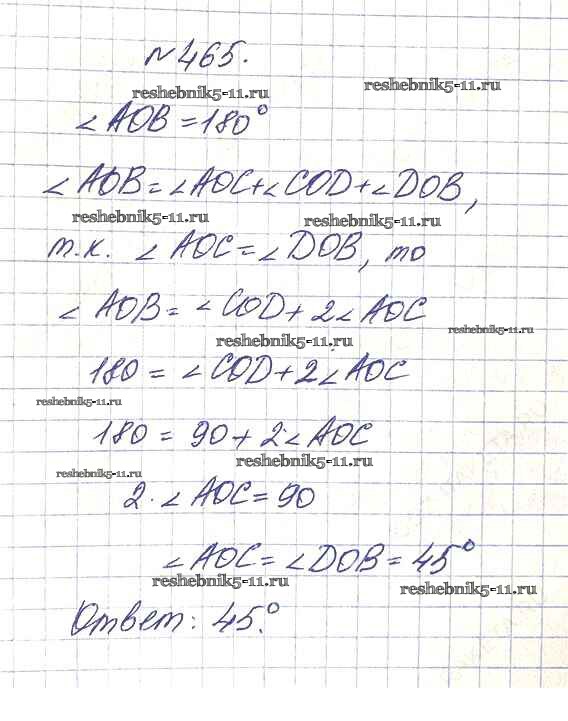 №465.
reshebnik5-11.ru reshebnik5-11.ru
∠AOB=180°
∠AOB=∠AOC+∠COD+∠DOB,
reshebnik5-11.ru reshebnik5-11.ru
т.к. ∠AOC=∠DOB, то
∠AOB=∠COD+2∠AOC
reshebnik5-11.ru
reshebnik5-11.ru
180=∠COD+2·∠AOC
reshebnik5-11.ru
180=90+2·∠AOC
reshebnik5-11.ru
reshebnik5-11.ru
2·∠AOC=90
∠AOC=∠DOB=45°
reshebnik5-11.ru reshebnik5-11.ru
Ответ: 45°.